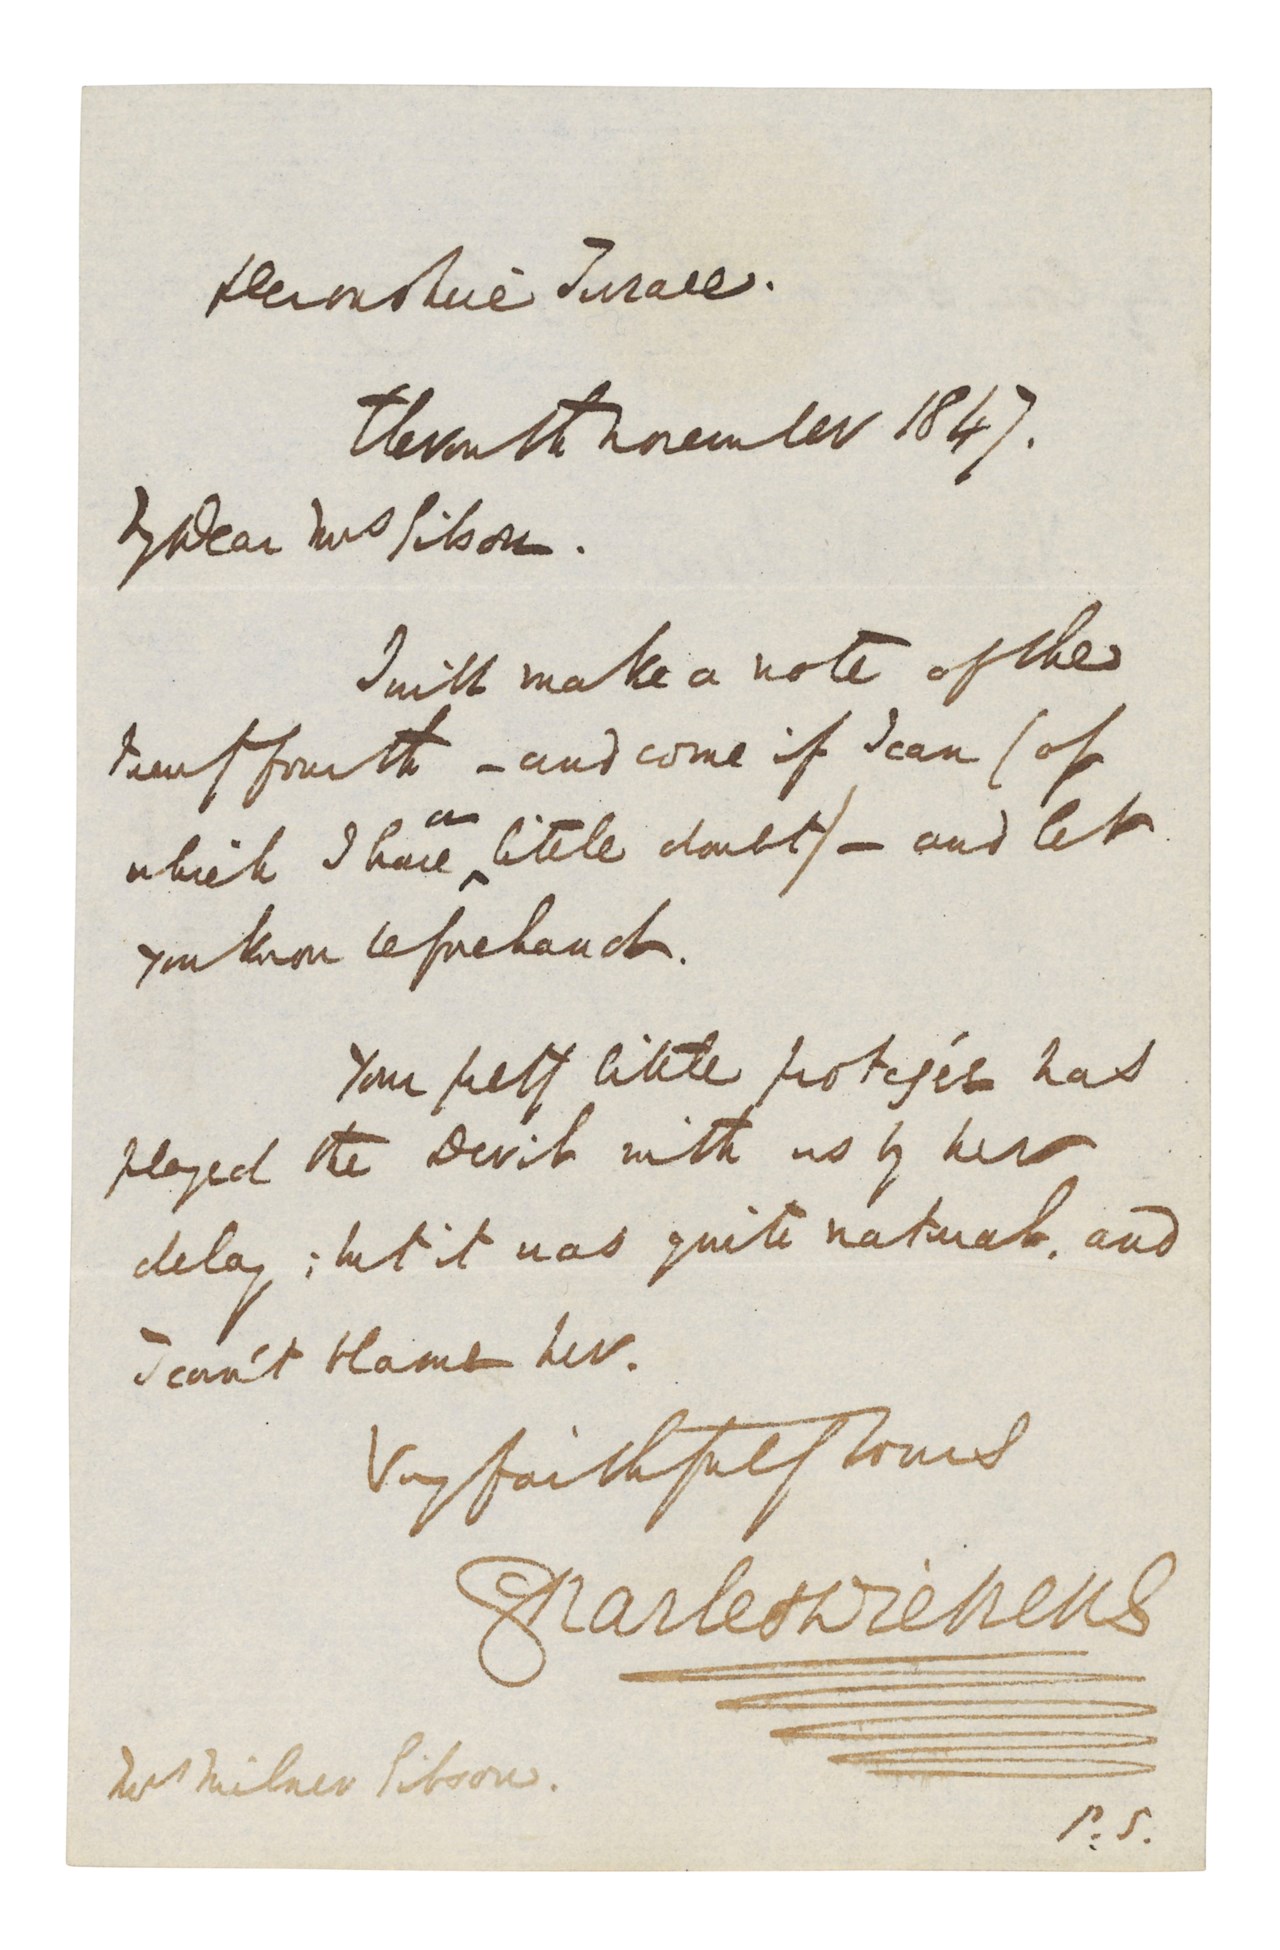 Devonshire Terrace.
Eleventh November 1847.
My Dear Mrs Gibson.
I will make a note of the
twenty fourth – and come if I can (of
which I have a little doubt) – and let
you know beforehand.
Your pretty little protegée has
played the Devil with us by her
delay; but it was quite natural, and
I can't blame her.
Very faithfully Yours
Charles Dickens
Mrs Milner Gibson.
P.S.